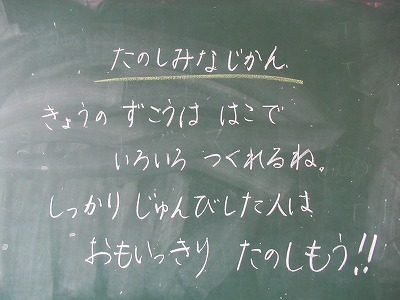 たのしみなじかん
きょうの ずこうは はこで
いろいろ つくれるね。
しっかり じゅんびした人は
おもいっきり たのしもう!!